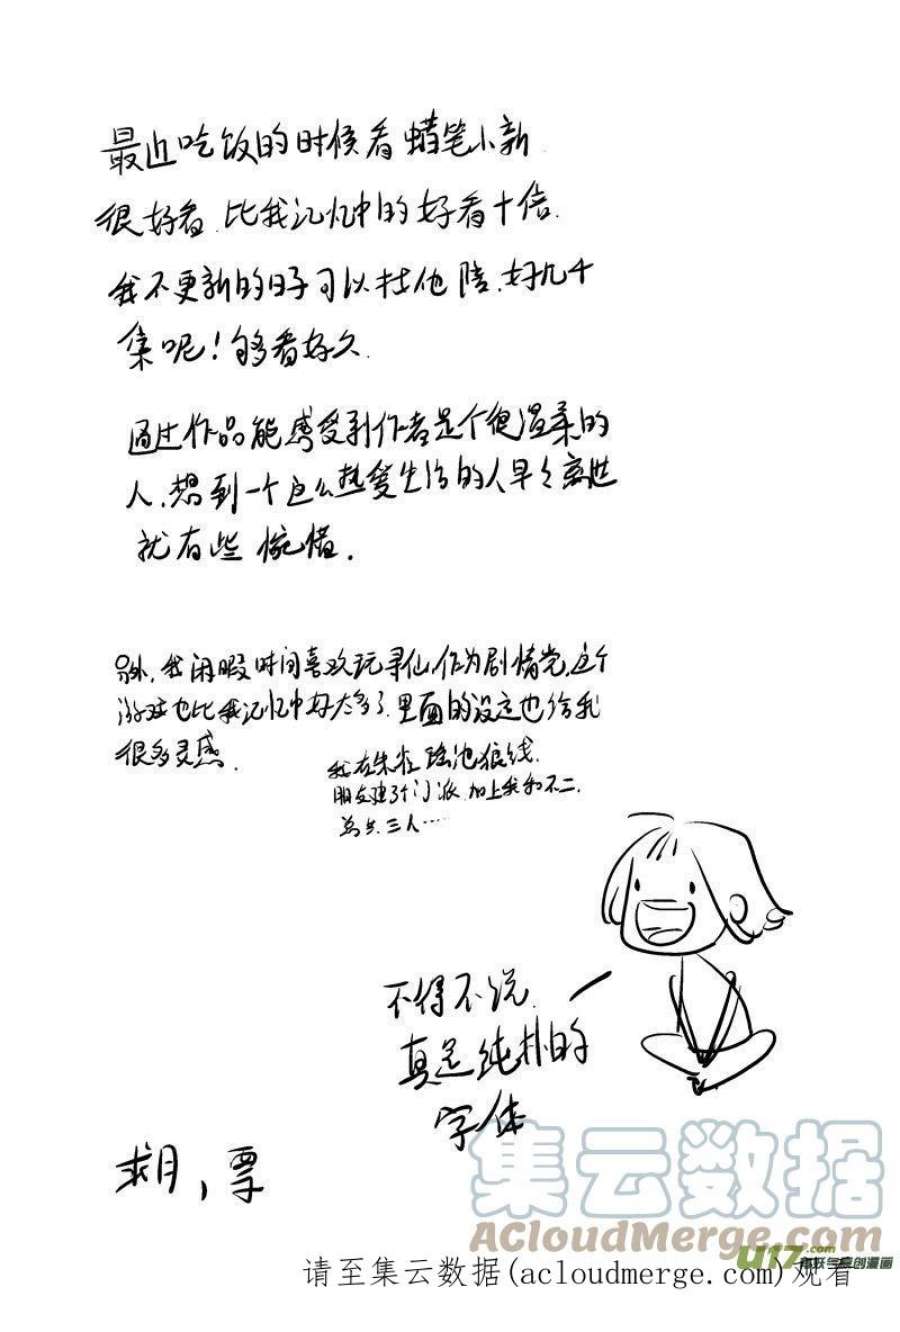 最近吃饭的时候看蜡笔小新
很好看.比我记忆中的好看十倍.
我不更新的日子可以找他陪.好几千
集呢!够看好久.
通过作品能感受到作者是个很温柔的
人.想到一个这么热爱生活的人早早离世
就有些惋惜.
另外,我闲暇时间喜欢玩寻仙,作为剧情党,这个
游戏也比我记忆中好太多了.里面的设定也给我
很多灵感.
我在朱雀瑶池狼线.
朋友建了个门派.加上我和不二.
总共三人……
不得不说.
真是纯朴的
字体
求月,票
集云数据
ACloudMerge.com
U17.com
请至集云数据(acloudmerge.com)观看